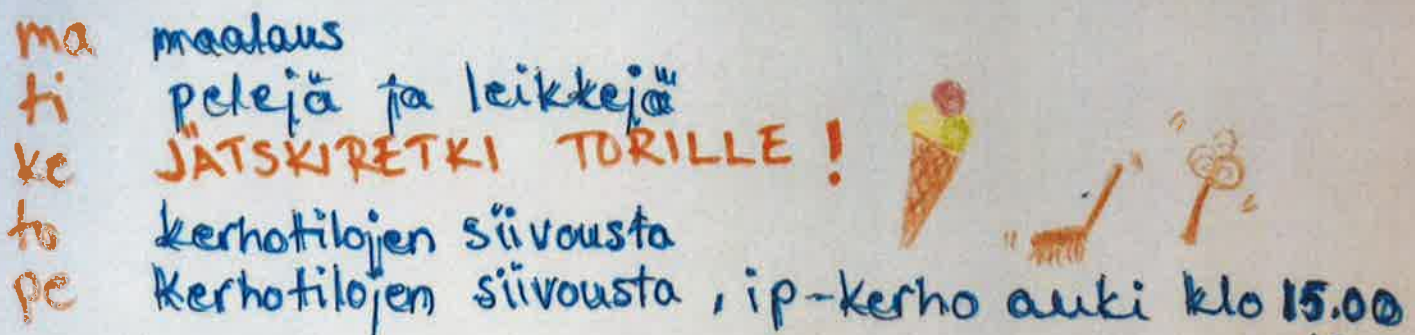 ma maalaus
ti pelejä ja leikkejä
ke JÄTSKIRETKI TORILLE !
to kerhotilojen siivousta
pe Kerhotilojen siivousta , ip-kerho auki klo 15.00